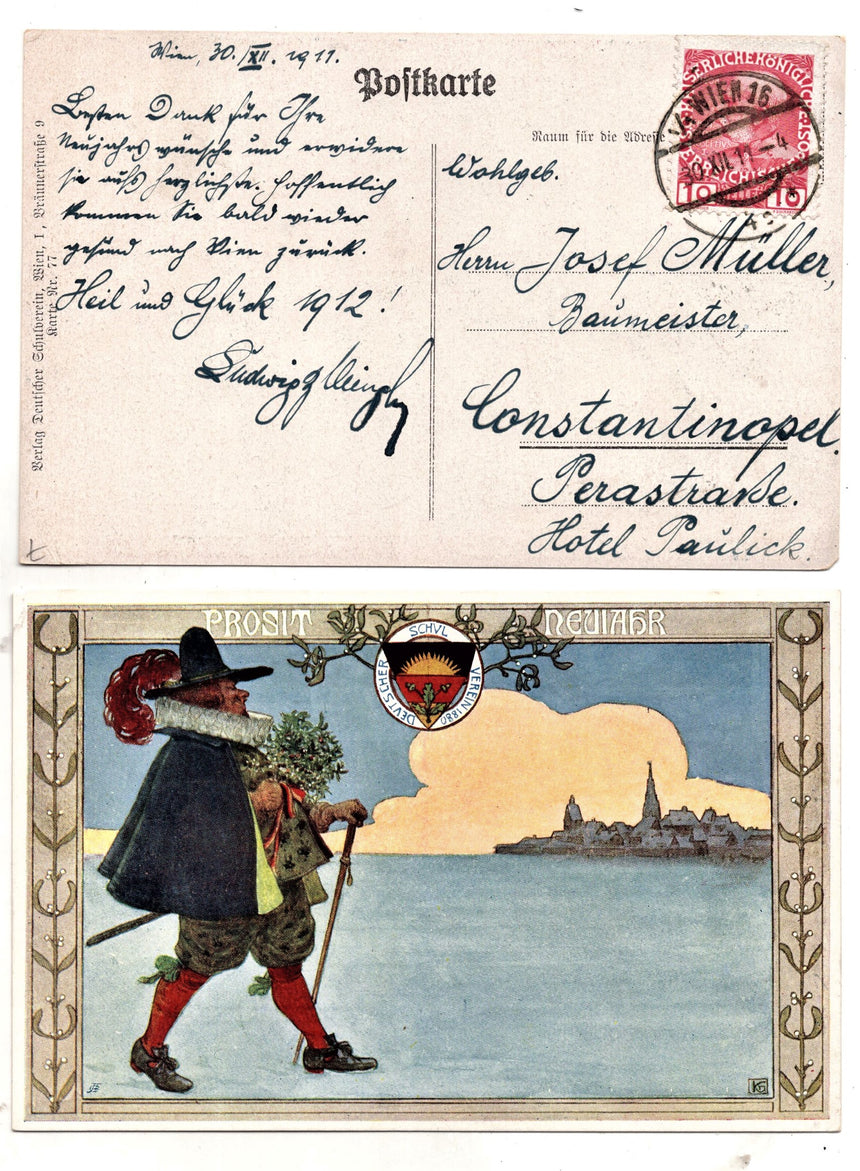 Wien, 30./XII. 1911.
Postkarte
Besten Dank für Ihre
Neujahrswünsche und erwidere
sie aufs herzlichste. Hoffentlich
kommen Sie bald wieder
gesund nach Wien zurück.
Heil und Glück 1912!
Ludwig
Verlag Deutscher Schulverein, Wien, I., Bräunerstraße 9
Karte Nr. 77
Raum für die Adresse
Wohlgeb.
Herrn Josef Müller,
Baumeister,
Constantinopel.
Perastraße.
Hotel Paulick.
WIEN 16
XII.11-4
10 10
PROSIT NEUJAHR
DEUTSCHER SCHUL VEREIN 1880
KG